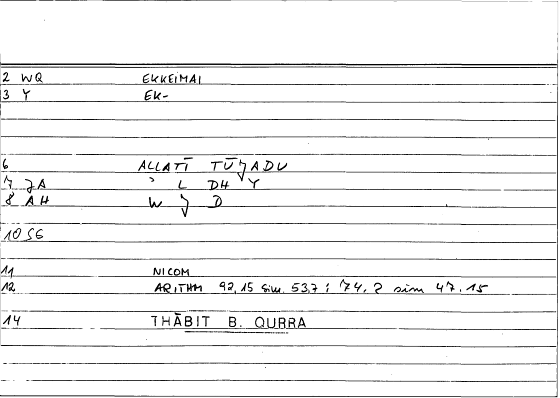 2 WQ EKKEIMAI
3 Y EK-
6 ALLATĪ TŪJADU
7 JA ʾ L DH Y
8 AH W J D
10 SG
11 NICOM
12 ARITHM 92,15 sim. 53,7 ; 74,2 sim 47.15
14 THĀBIT B. QURRA